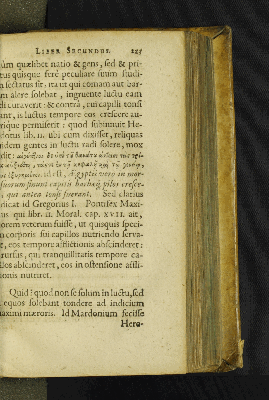 LIBER SECUNDUS.
ùm quælibet natio & gens, sed & pri-
tus quisque ferè peculiare suum studi-
n sectatus sit: ita ut qui comam aut bar-
m alere solebat, ingruente luctu eam
di curaverit: & contrà, cui capilli tonsi
ant, is luctus tempore eos crescere au-
rique permiserit: quod subinnuit He-
dotus lib. II. ubi cum dixisset, reliquas
ndem gentes in luctu radi solere, mox
dit:
id est, Ægyptii verò in mor-
suorum sinunt capiti barbæq; pilos cresce-
qui antea tonsi fuerant. Sed clarius
dicat id Gregorius I. Pontifex Maxi-
us qui libr. II. Moral. cap. XVII. ait,
orem veterum fuisse, ut quisquis speci-
n corporis sui capillos nutriendo serva-
t, eos tempore afflictionis abscinderet:
rursus, qui tranquillitatis tempore ca-
llos abscinderet, eos in ostensione affli-
ionis nutriret.
Quid? quod non se solum in luctu, sed
equos solebant tondere ad indicium
aximi mæroris. Id Mardonium fecisse
Hero-